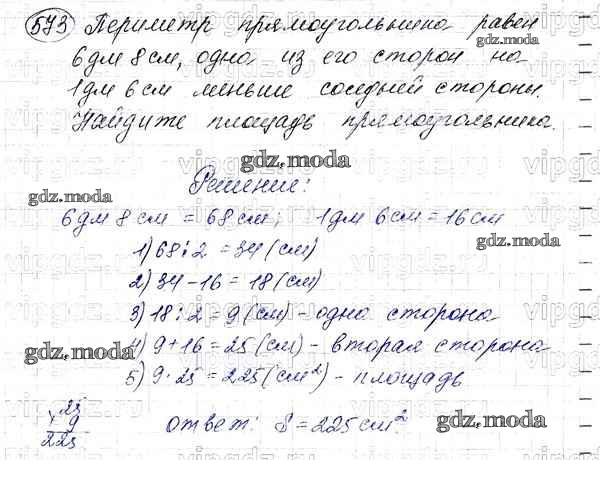 573 Периметр прямоугольника равен
6 дм 8 см, одна из его сторон на
1 дм 6 см меньше соседней стороны.
Найдите площадь прямоугольника.
gdz.moda
Решение:
gdz.moda
6 дм 8 см = 68 см, 1 дм 6 см = 16 см
gdz.moda
1) 68 : 2 = 34 (см)
2) 34 - 16 = 18 (см)
3) 18 : 2 = 9 (см) - одна сторона
gdz.moda
4) 9 + 16 = 25 (см) - вторая сторона
5) 9 · 25 = 225 (см²) - площадь
25
× 9
225
ответ: S = 225 см²
gdz.moda